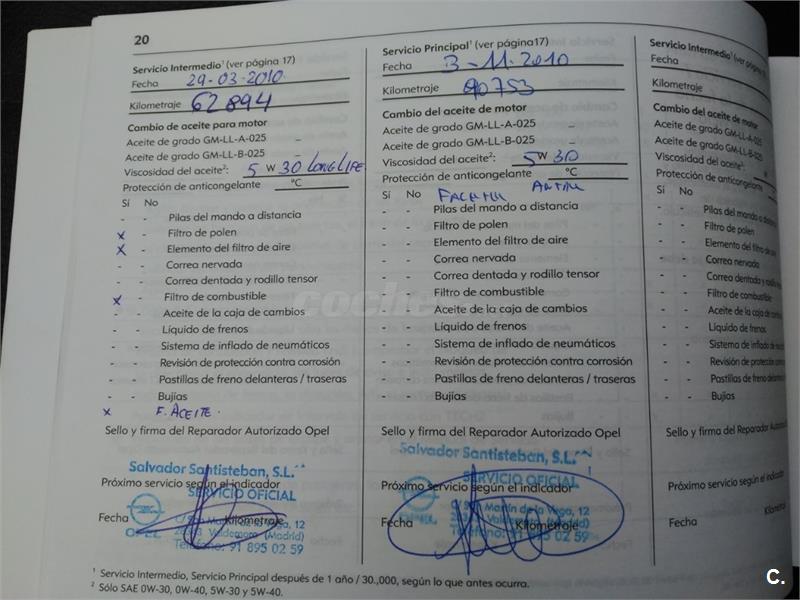 20
Servicio Intermedio¹ (ver página 17)
Fecha 29-03-2010
Kilometraje 62894
Cambio de aceite para motor
Aceite de grado GM-LL-A-025 –
Aceite de grado GM-LL-B-025 –
Viscosidad del aceite²: 5 W 30 LONG LIFE
Protección de anticongelante °C
Sí No
- - Pilas del mando a distancia
x - Filtro de polen
x - Elemento del filtro de aire
- - Correa nervada
- - Correa dentada y rodillo tensor
x - Filtro de combustible
- - Aceite de la caja de cambios
- - Líquido de frenos
- - Sistema de inflado de neumáticos
- - Revisión de protección contra corrosión
- - Pastillas de freno delanteras / traseras
- - Bujías
x F. ACEITE.
Sello y firma del Reparador Autorizado Opel
Salvador Santisteban, S.L.
Próximo servicio según el indicador
SERVICIO OFICIAL
Fecha Kilometraje
OPEL
Valdemoro (Madrid)
Teléfono: 91 895 02 59
Servicio Principal¹ (ver página17)
Fecha 3-11-2010
Kilometraje 90753
Cambio del aceite de motor
Aceite de grado GM-LL-A-025 –
Aceite de grado GM-LL-B-025 –
Viscosidad del aceite²: 5 W 30
Protección de anticongelante °C
Sí No
- - Pilas del mando a distancia
- - Filtro de polen
- - Elemento del filtro de aire
- - Correa nervada
- - Correa dentada y rodillo tensor
- - Filtro de combustible
- - Aceite de la caja de cambios
- - Líquido de frenos
- - Sistema de inflado de neumáticos
- - Revisión de protección contra corrosión
- - Pastillas de freno delanteras / traseras
- - Bujías
Sello y firma del Reparador Autorizado Opel
Salvador Santisteban, S.L.
Próximo servicio según el indicador
SERVICIO OFICIAL
C/ San Martín de la Vega, 12
Fecha Kilometraje
Valdemoro (Madrid)
Teléfono: 91 895 02 59
Servicio Intermedio¹ (ver página
Fecha
Kilometraje
Cambio del aceite de motor
Aceite de grado GM-LL-A-025
Aceite de grado GM-LL-B-025
Viscosidad del aceite²:
Protección de anticongelante
Sí No
- - Pilas del mando a distancia
- - Filtro de polen
- - Elemento del filtro de aire
- - Correa nervada
- - Correa dentada y rodillo tensor
- - Filtro de combustible
- - Aceite de la caja de cambios
- - Líquido de frenos
- - Sistema de inflado de neumáticos
- - Revisión de protección contra corrosión
- - Pastillas de freno delanteras /
- - Bujías
Sello y firma del Reparador Autorizado
Próximo servicio según el indicador
Fecha Kilometraje
¹ Servicio Intermedio, Servicio Principal después de 1 año / 30.,000, según lo que antes ocurra.
² Sólo SAE 0W-30, 0W-40, 5W-30 y 5W-40.
coches
C.